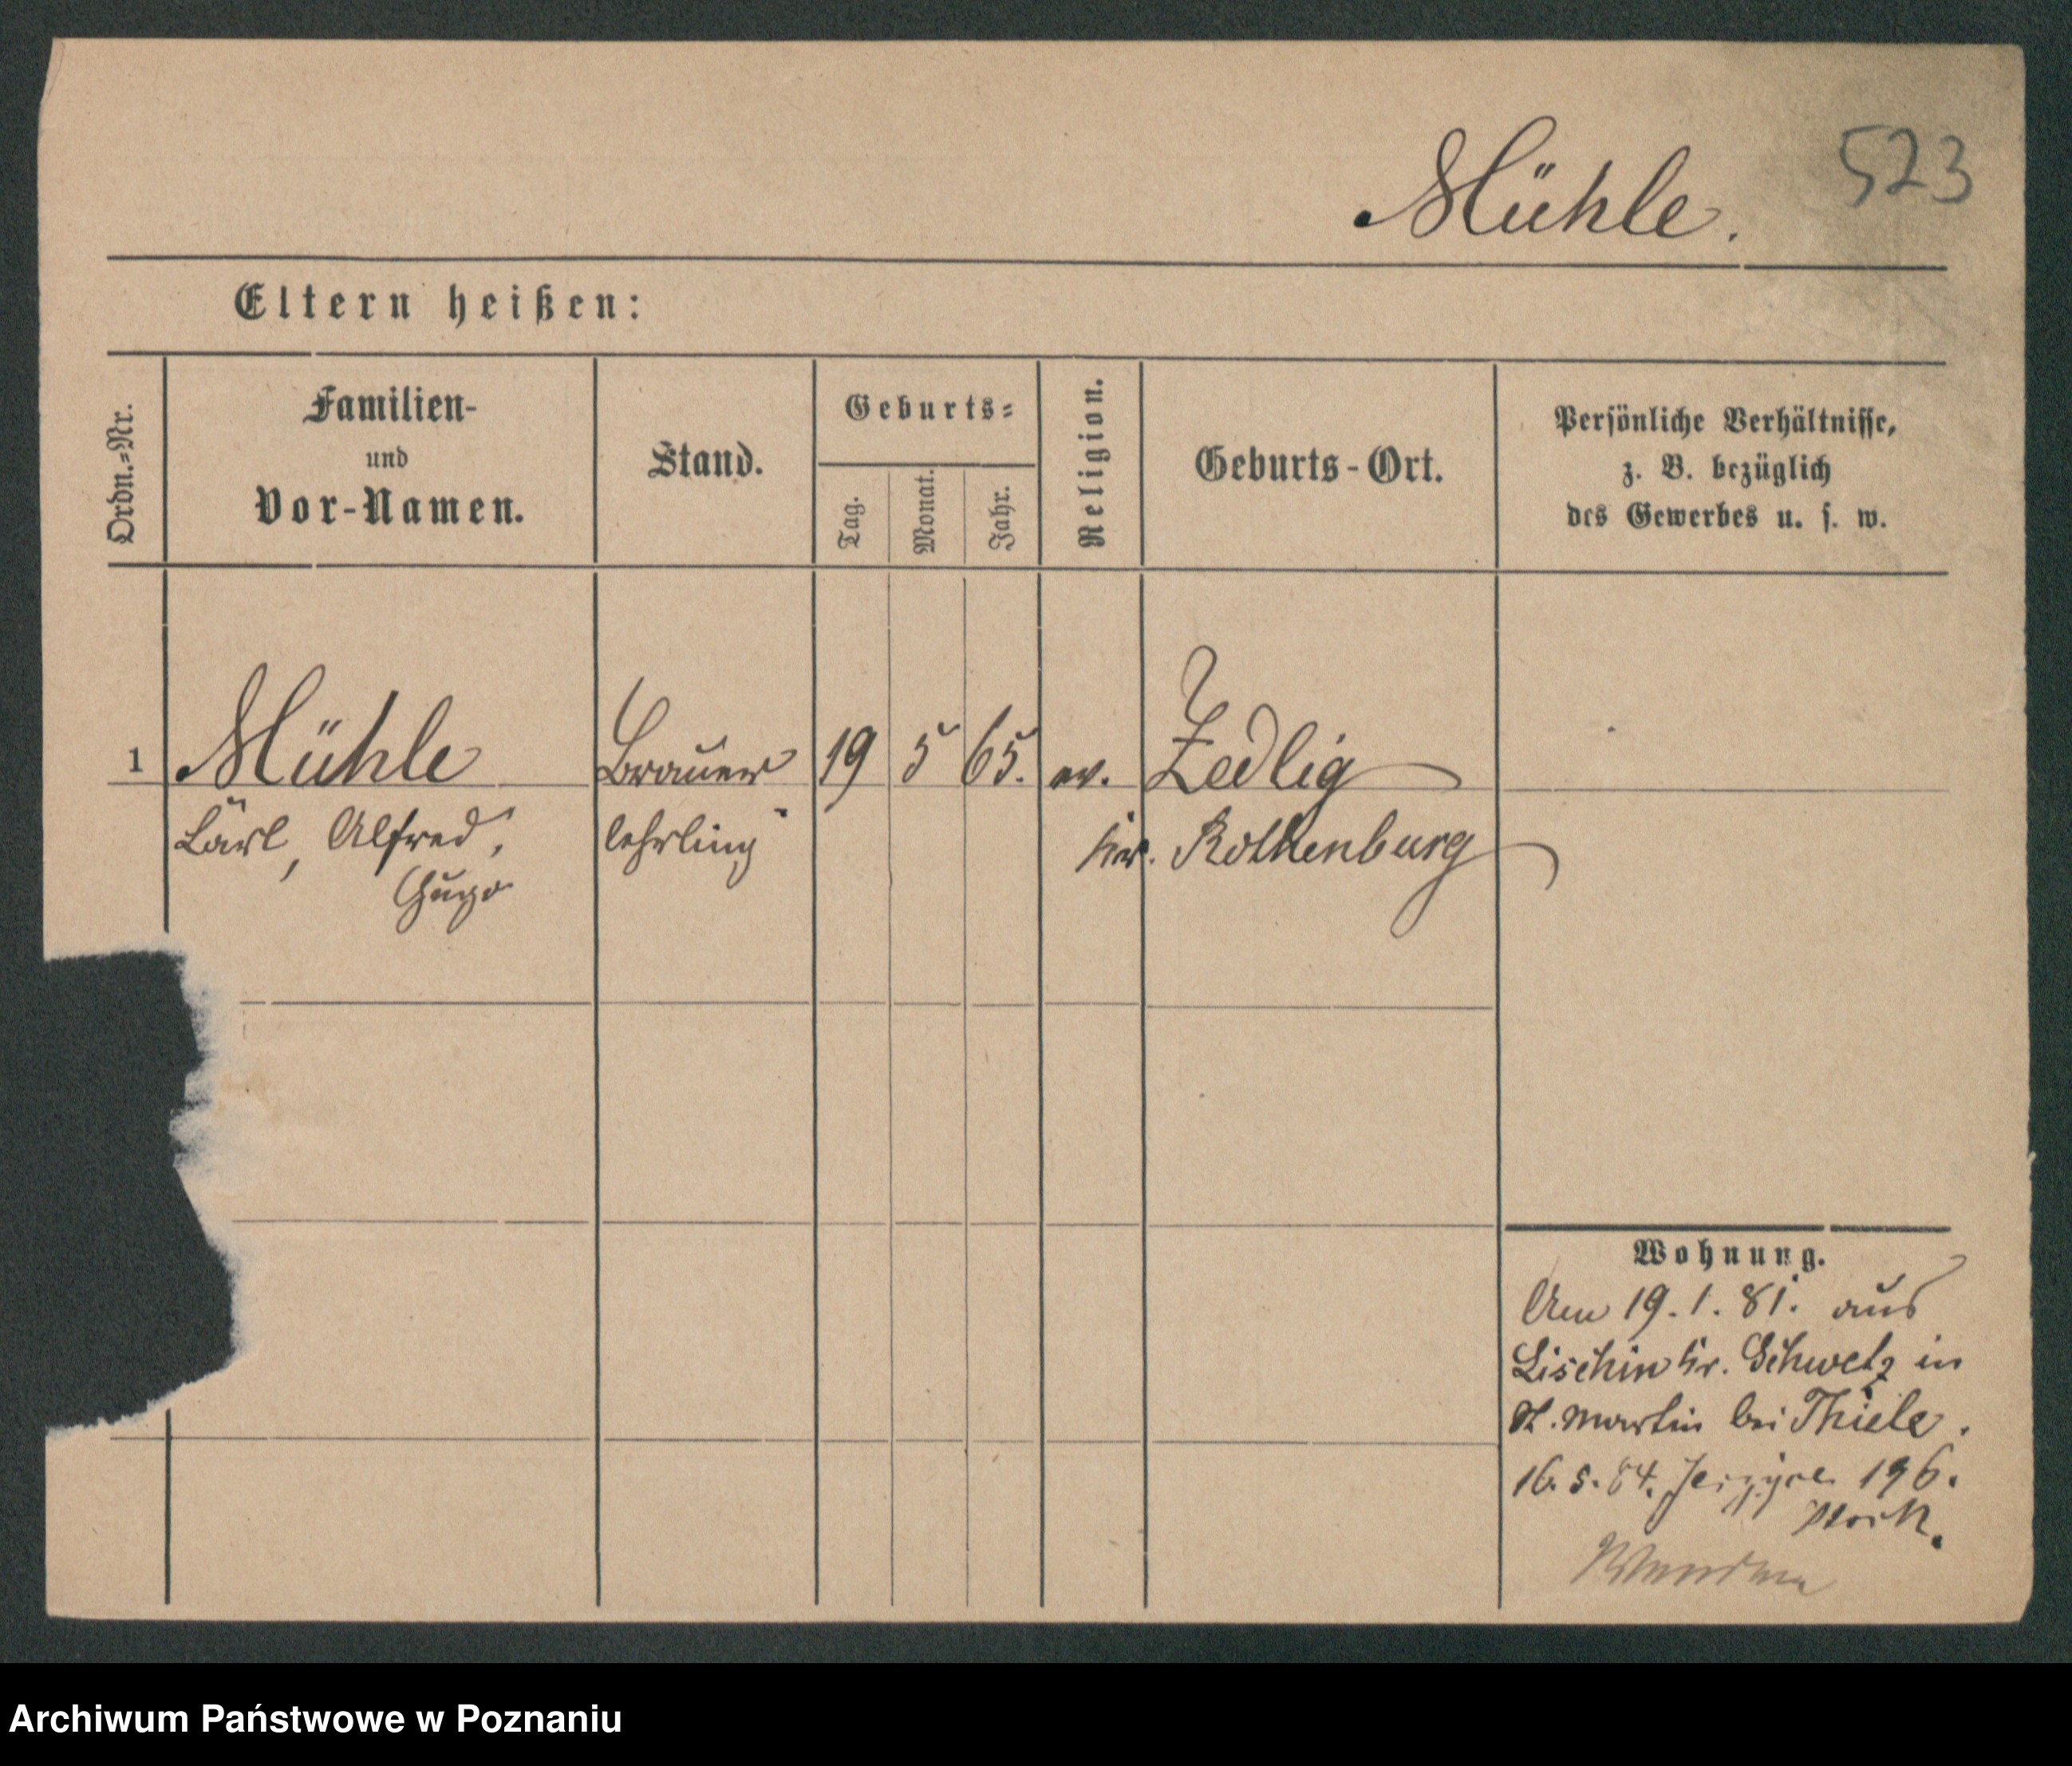 523
Mühle.
Eltern heißen:
Ordn.=Nr.
Familien-
und
Vor-Namen.
Stand.
Geburts=
Tag.
Monat.
Jahr.
Religion.
Geburts-Ort.
Persönliche Verhältnisse,
z. B. bezüglich
des Gewerbes u. s. w.
1 Mühle Brauer 19 5 65. ev. Zedlig
Carl, Alfred, lehrling Kr. Rothenburg
Hugo
Wohnung.
Am 19. 1. 81. aus
Lischin Kr. Schwetz in
St. Martin bei Thiele.
16. 5. 84. 196.